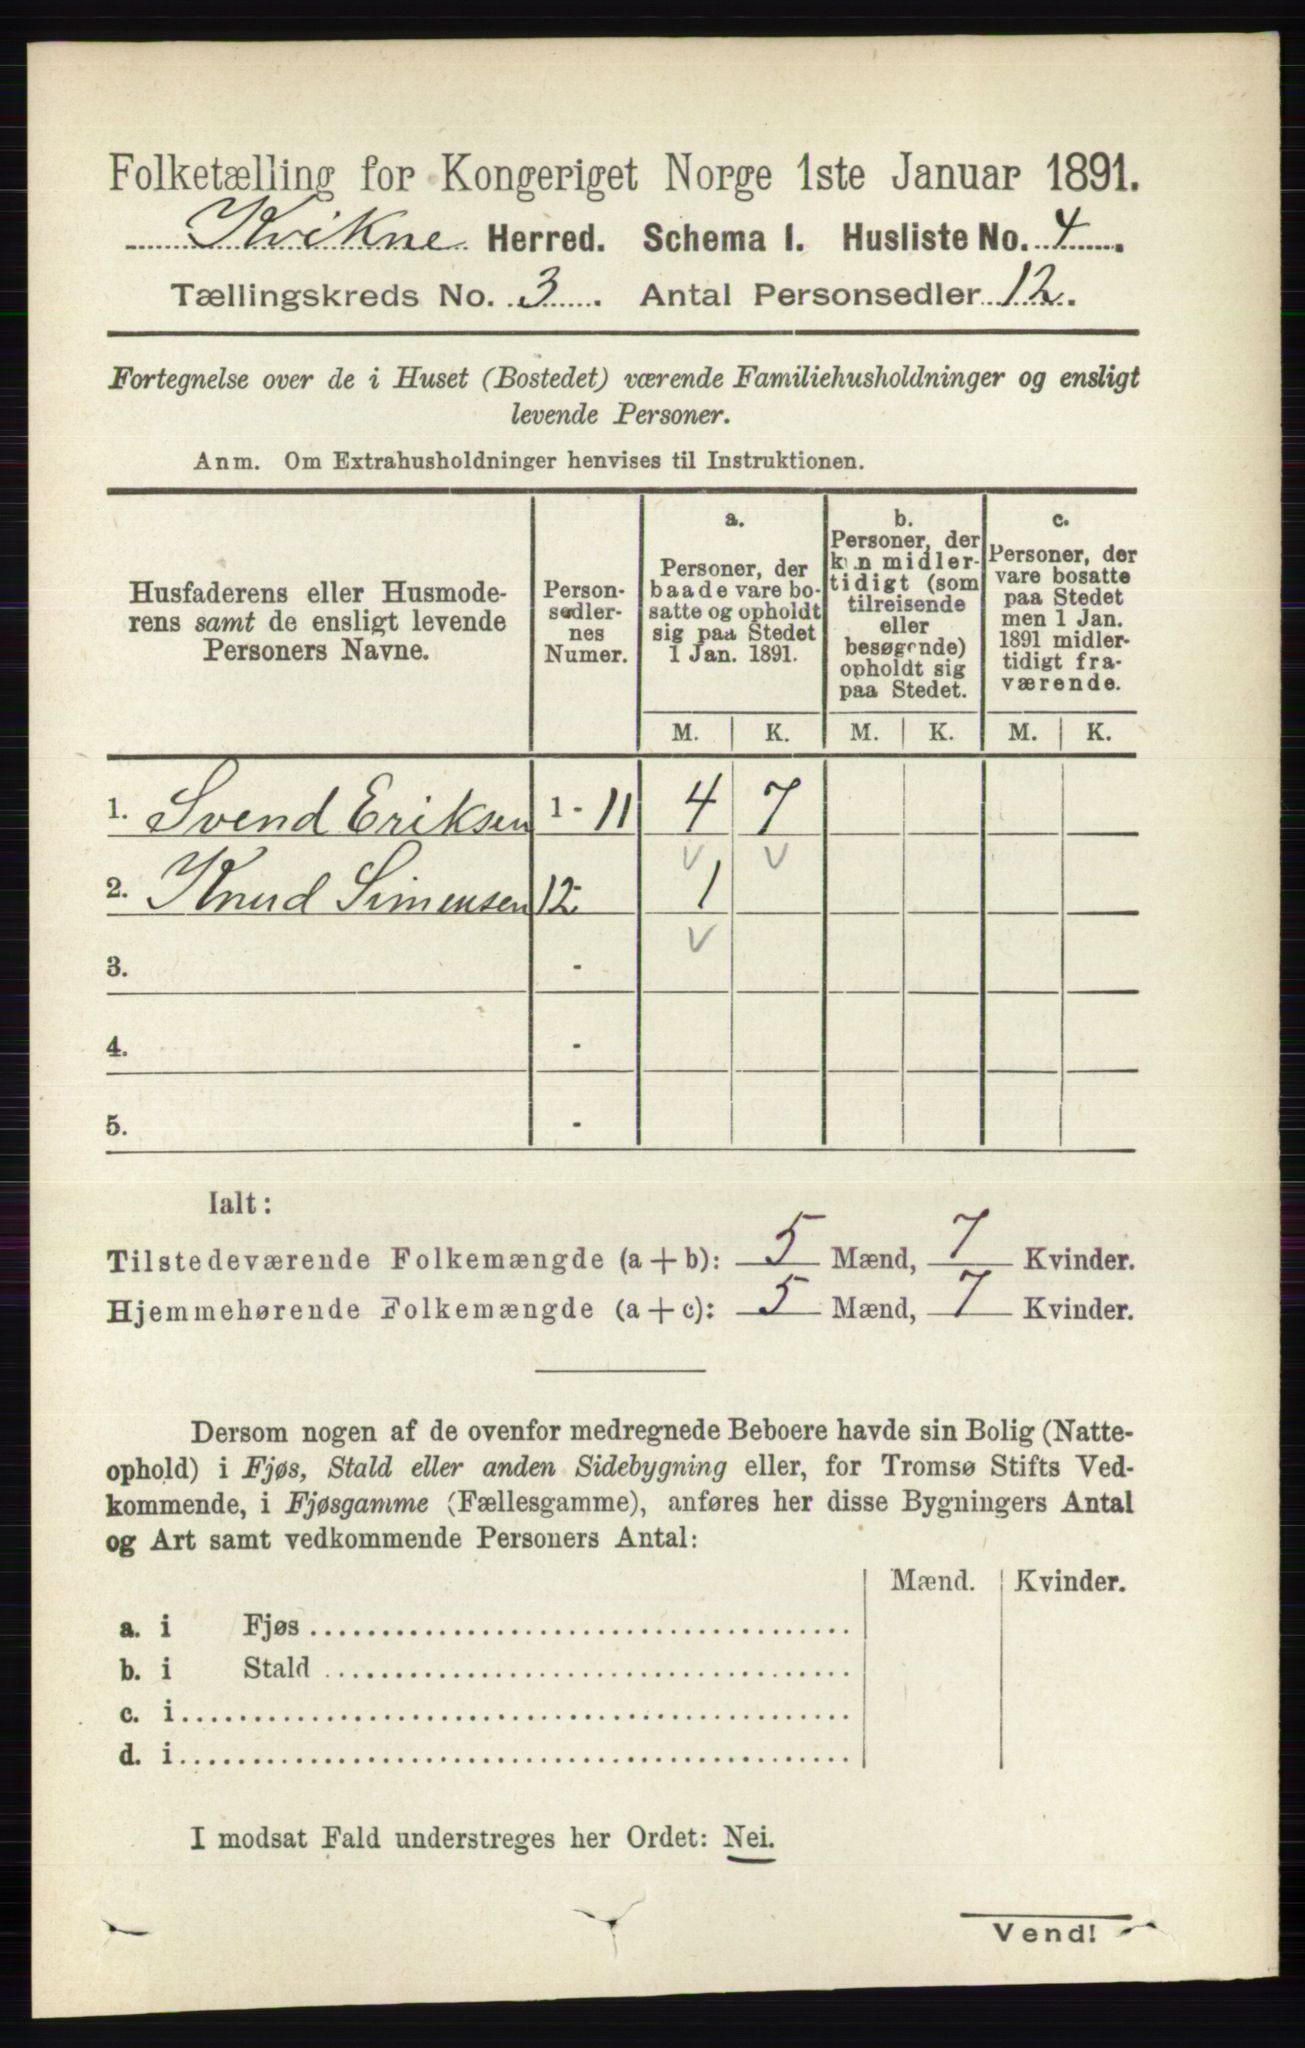 Folketælling for Kongeriget Norge 1ste Januar 1891.
Kvikne Herred. Schema I. Husliste No. 4.
Tællingskreds No. 3. Antal Personsedler 12.
Fortegnelse over de i Huset (Bostedet) værende Familiehusholdninger og ensligt
levende Personer.
Anm. Om Extrahusholdninger henvises til Instruktionen.
Husfaderens eller Husmode-
rens samt de ensligt levende
Personers Navne.
Person-
sedler-
nes
Numer.
a.
Personer, der
baade vare bo-
satte og opholdt
sig paa Stedet
1 Jan. 1891.
b.
Personer, der
kun midler-
tidigt (som
tilreisende
eller
besøgende)
opholdt sig
paa Stedet.
c.
Personer, der
vare bosatte
paa Stedet
men 1 Jan.
1891 midler-
tidigt fra-
værende.
M. K. M. K. M. K.
1. Svend Eriksen 1 - 11 4 7
2. Knud Simensen 12 - 1
3. -
4. -
5. -
Ialt:
Tilstedeværende Folkemængde (a + b): 5 Mænd, 7 Kvinder.
Hjemmehørende Folkemængde (a + c): 5 Mænd, 7 Kvinder.
Dersom nogen af de ovenfor medregnede Beboere havde sin Bolig (Natte-
ophold) i Fjøs, Stald eller anden Sidebygning eller, for Tromsø Stifts Ved-
kommende, i Fjøsgamme (Fællesgamme), anføres her disse Bygningers Antal
og Art samt vedkommende Personers Antal:
Mænd. Kvinder.
a. i Fjøs
b. i Stald
c. i
d. i
I modsat Fald understreges her Ordet: Nei.
Vend!